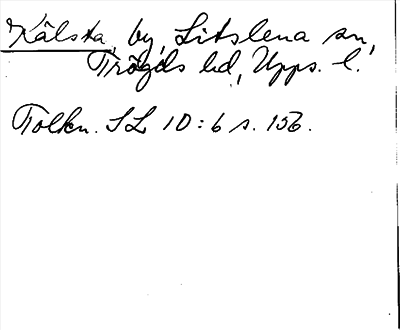 Kålsta, by, Litslena sn,
Trögds hd, Upps. l.
Tolkn. SL 10:6 s. 156.